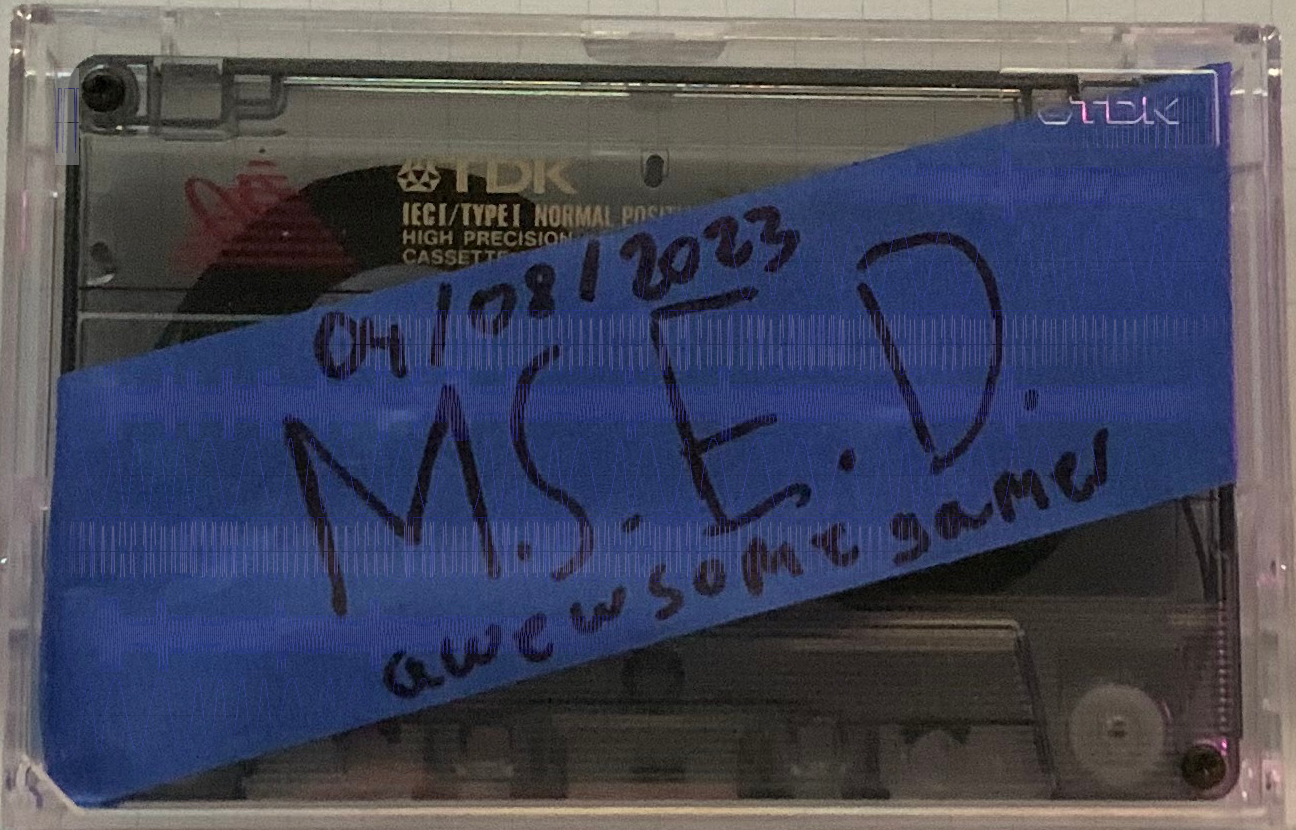 TDK
TDK
IECI/TYPE I NORMAL POSITI
HIGH PRECISION
CASSETTE
04/08/2023
M.S.E.D.
awewsome gamer